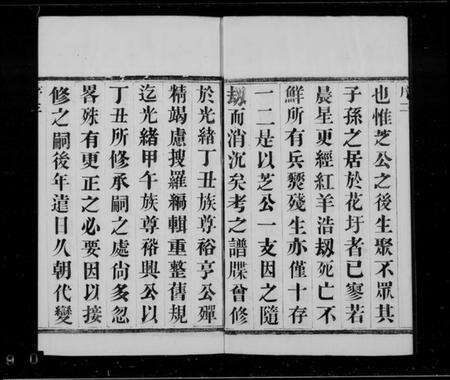 也惟芝公之後生聚不眾其
子孫之居於花圩者已寥若
晨星更經紅羊浩刼死亡不
鮮所有兵燹殘生亦僅十存
一二是以芝公一支因之隨
刼而消沉矣考之譜牒曾修
於光緒丁丑族尊裕亨公殫
精竭慮搜羅編輯重整舊規
迄光緒甲午族尊裕興公以
丁丑所修承嗣之處尙多忽
畧殊有更正之必要因以接
修之嗣後年遠日久朝代變
序二